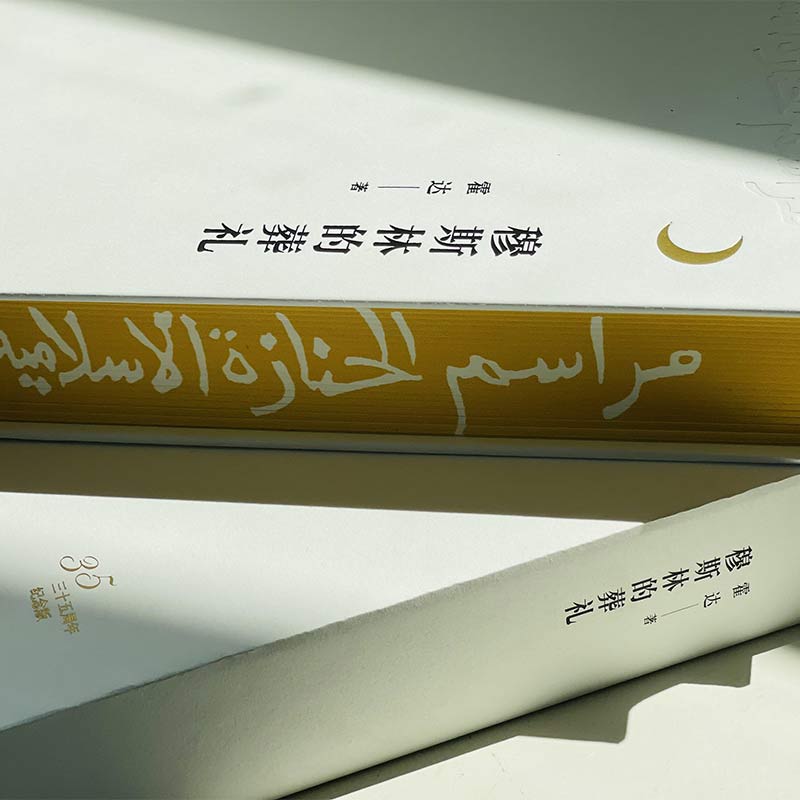 穆斯林的葬礼
霍 达 — 著
مراسم الجنازة الاسلامية
35
三十五周年
纪念版
穆斯林的葬礼
霍 达 — 著